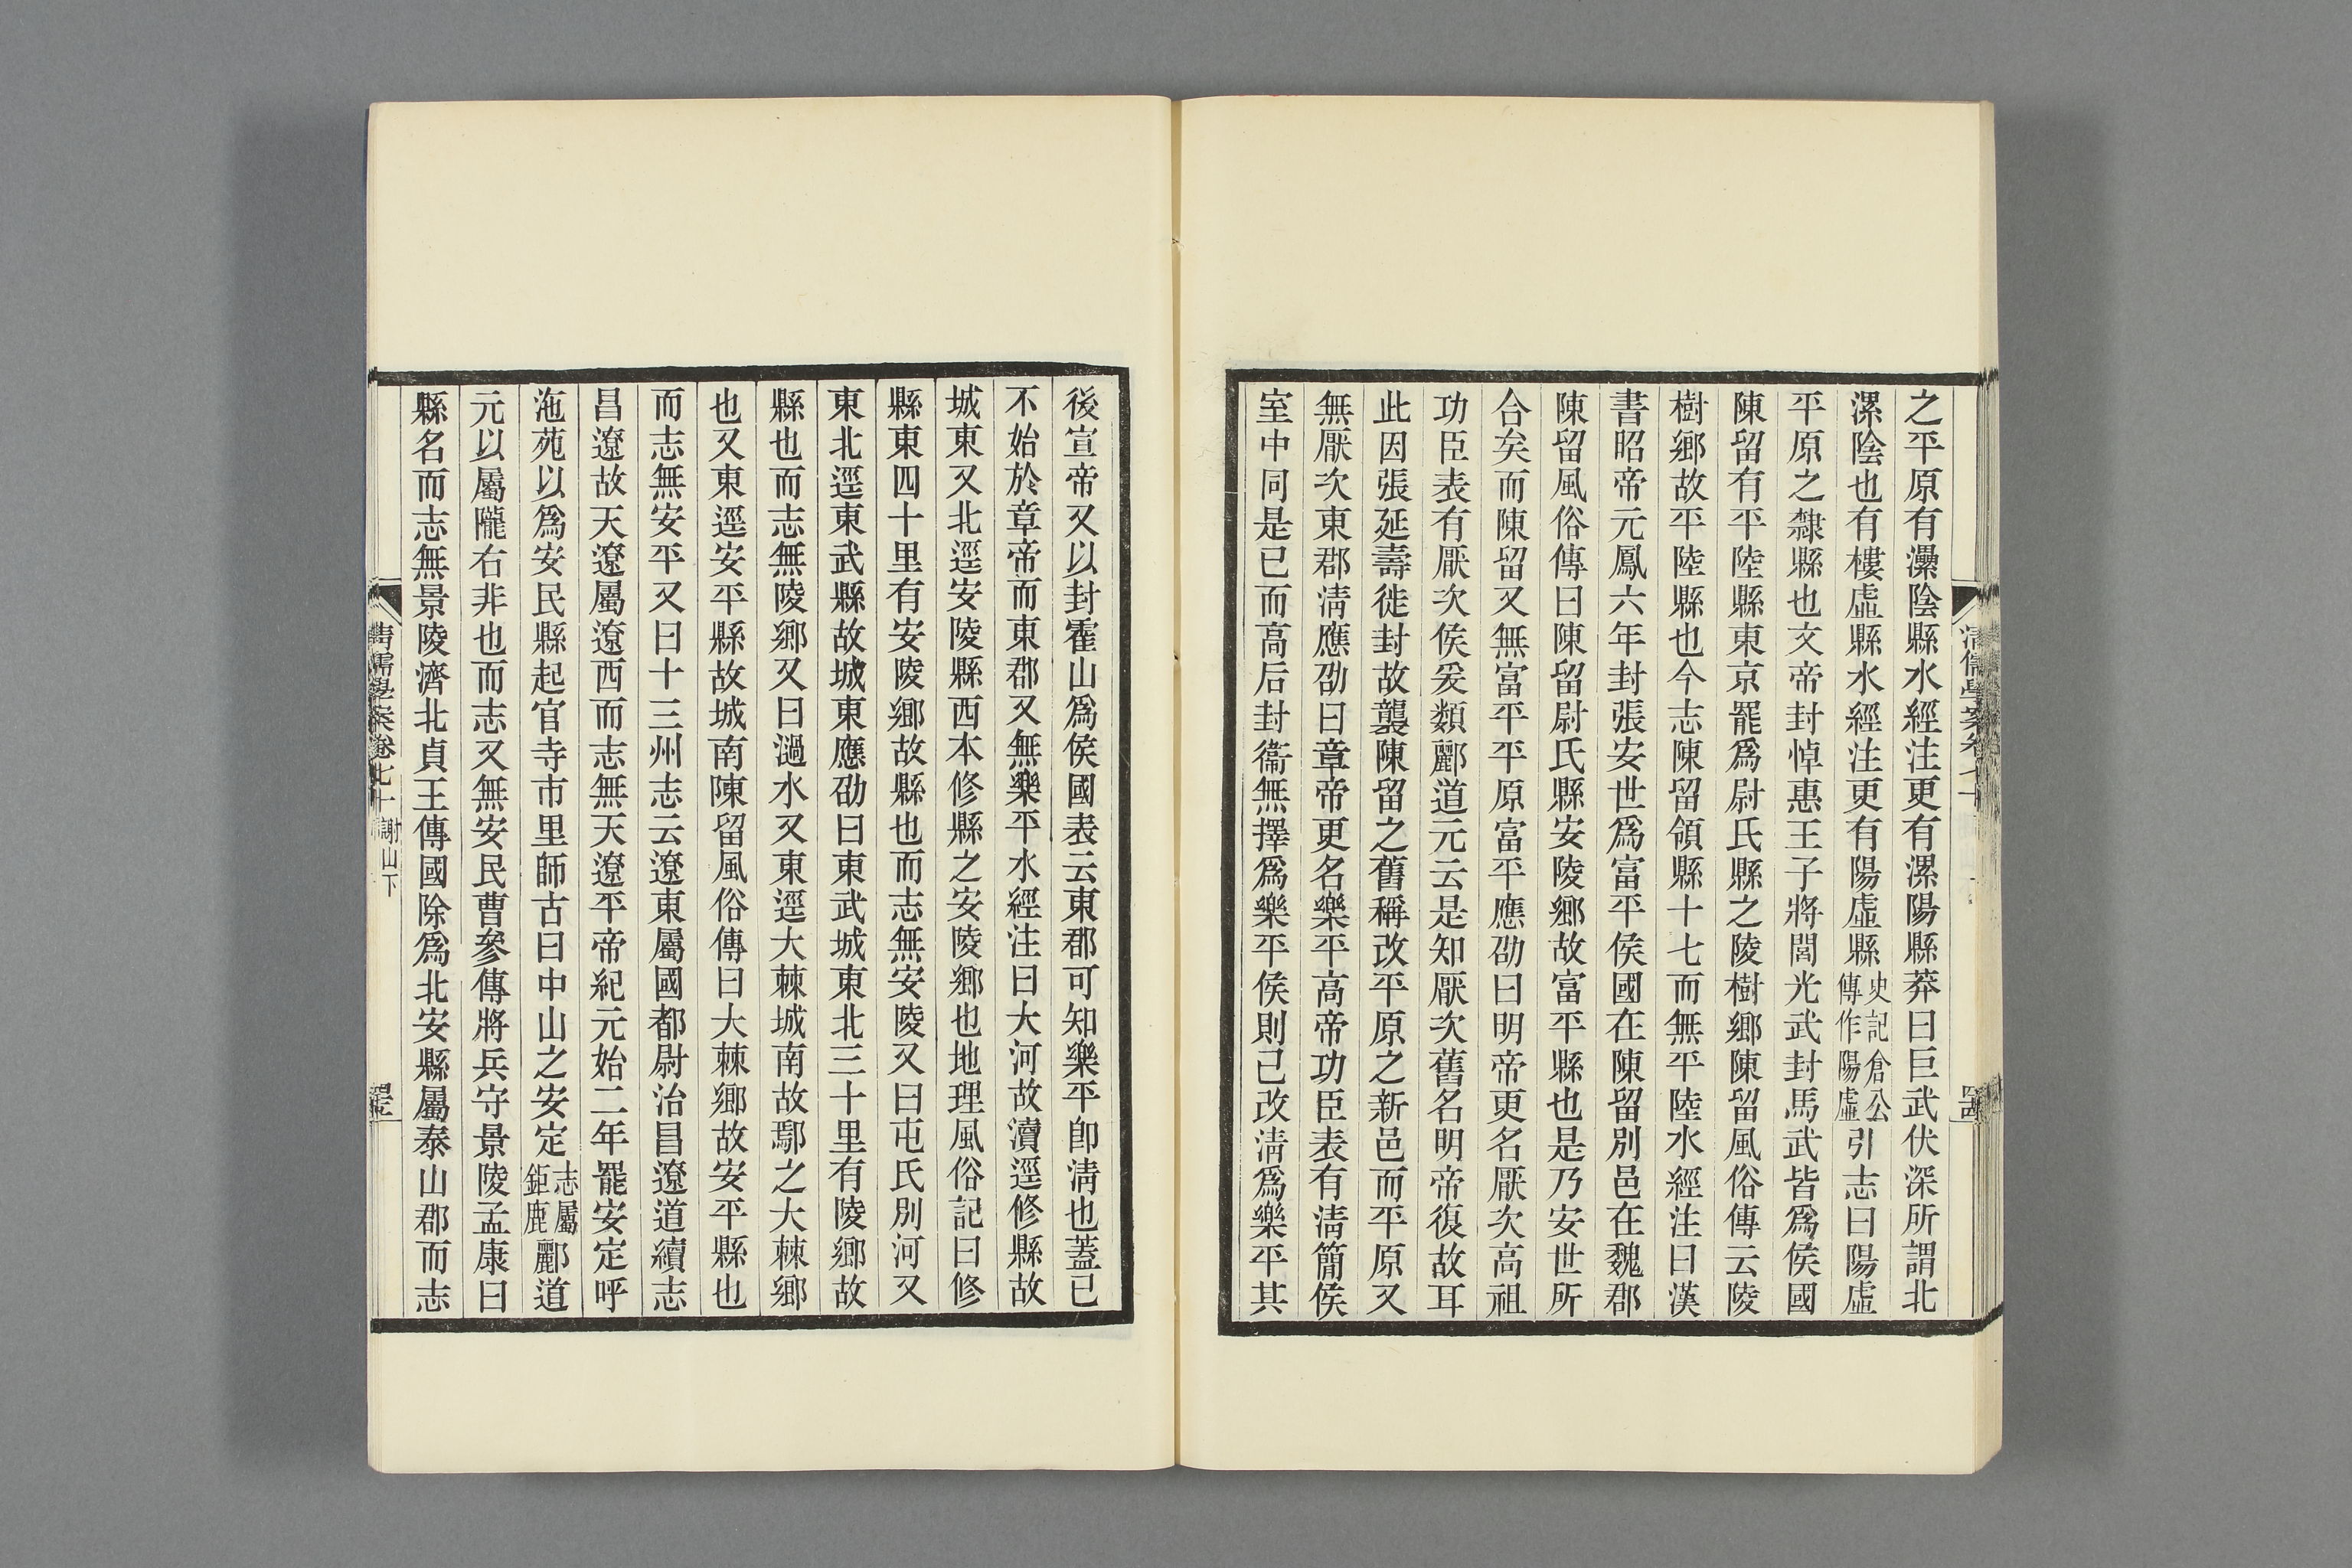 之平原有濕陰縣水經注更有漯陽縣莽曰巨武伏深所謂北
漯陰也有樓虛縣水經注更有陽虛縣史記倉公傳作陽虛引志曰陽虛
平原之隸縣也文帝封悼惠王子將閭光武封馬武皆爲侯國
陳留有平陸縣東京罷爲尉氏縣之陵樹鄉陳留風俗傳云陵
樹鄉故平陸縣也今志陳留領縣十七而無平陸水經注曰漢
書昭帝元鳳六年封張安世爲富平侯國在陳留別邑在魏郡
陳留風俗傳曰陳留尉氏縣安陵鄉故富平縣也是乃安世所
合矣而陳留又無富平平原富平應劭曰明帝更名厭次高祖
功臣表有厭次侯爰類酈道元云是知厭次舊名明帝復故耳
此因張延壽徙封故襲陳留之舊稱改平原之新邑而平原又
無厭次東郡淸應劭曰章帝更名樂平高帝功臣表有淸簡侯
室中同是已而高后封衞無擇爲樂平侯則已改淸爲樂平其
清儒學案卷七十
後宣帝又以封霍山爲侯國表云東郡可知樂平卽淸也蓋已
不始於章帝而東郡又無樂平水經注曰大河故瀆逕修縣故
城東又北逕安陵縣西本修縣之安陵鄉也地理風俗記曰修
縣東四十里有安陵鄉故縣也而志無安陵又曰屯氏別河又
東北逕東武縣故城東應劭曰東武城東北三十里有陵鄉故
縣也而志無陵鄉又曰濄水又東逕大棘城南故鄢之大棘鄉
也又東逕安平縣故城南陳留風俗傳曰大棘鄉故安平縣也
而志無安平又曰十三州志云遼東屬國都尉治昌遼道續志
昌遼故天遼屬遼西而志無天遼平帝紀元始二年罷安定呼
沲苑以爲安民縣起官寺市里師古曰中山之安定志屬鉅鹿酈道
元以屬隴右非也而志又無安民曹參傳將兵守景陵孟康曰
縣名而志無景陵濟北貞王傳國除爲北安縣屬泰山郡而志
清儒學案卷七十 謝山下